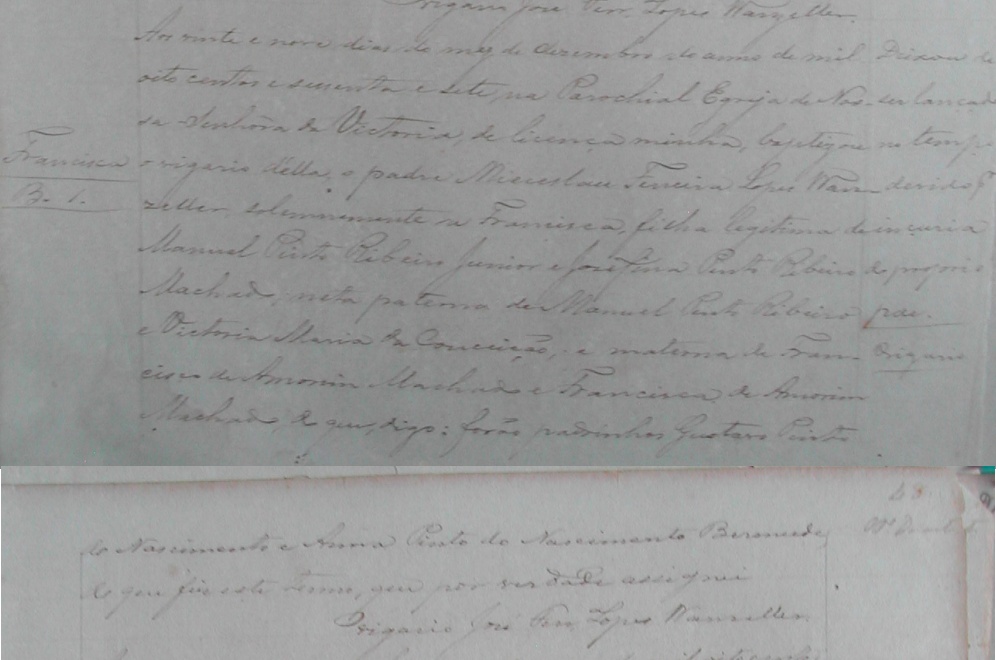 Vigario José Ferr. Lopes Wanzeller.
Francisca
B. 1.
Aos vinte e nove dias do mez de Dezembro do anno de mil
oito centos e sessenta e sete, na Parochial Egreja de Nos-
sa Senhora da Victoria, de licença minha, baptizou
o vigario d'ella, o padre Misceslau Ferreira Lopes Wan-
zeller solemnemente a Francisca, filha legitima de
Manuel Pinto Ribeiro Junior e Josefina Pinto Ribeiro
Machado, neta paterna de Manuel Pinto Ribeiro
e Victoria Maria da Conceição, e materna de Fran-
cisco de Amorim Machado e Francisca de Amorim
Machado, do que, digo: forão padrinhos Gustavo Pinto
Deixou de
ser lançad
no temp.
devido
incuria
do proprio
pae.
Vigario
do Nascimento e Anna Pinto do Nascimento Bermude
do que fiz este termo, que por verdade assignei
Vigario José Ferr. Lopes Wanzeller.